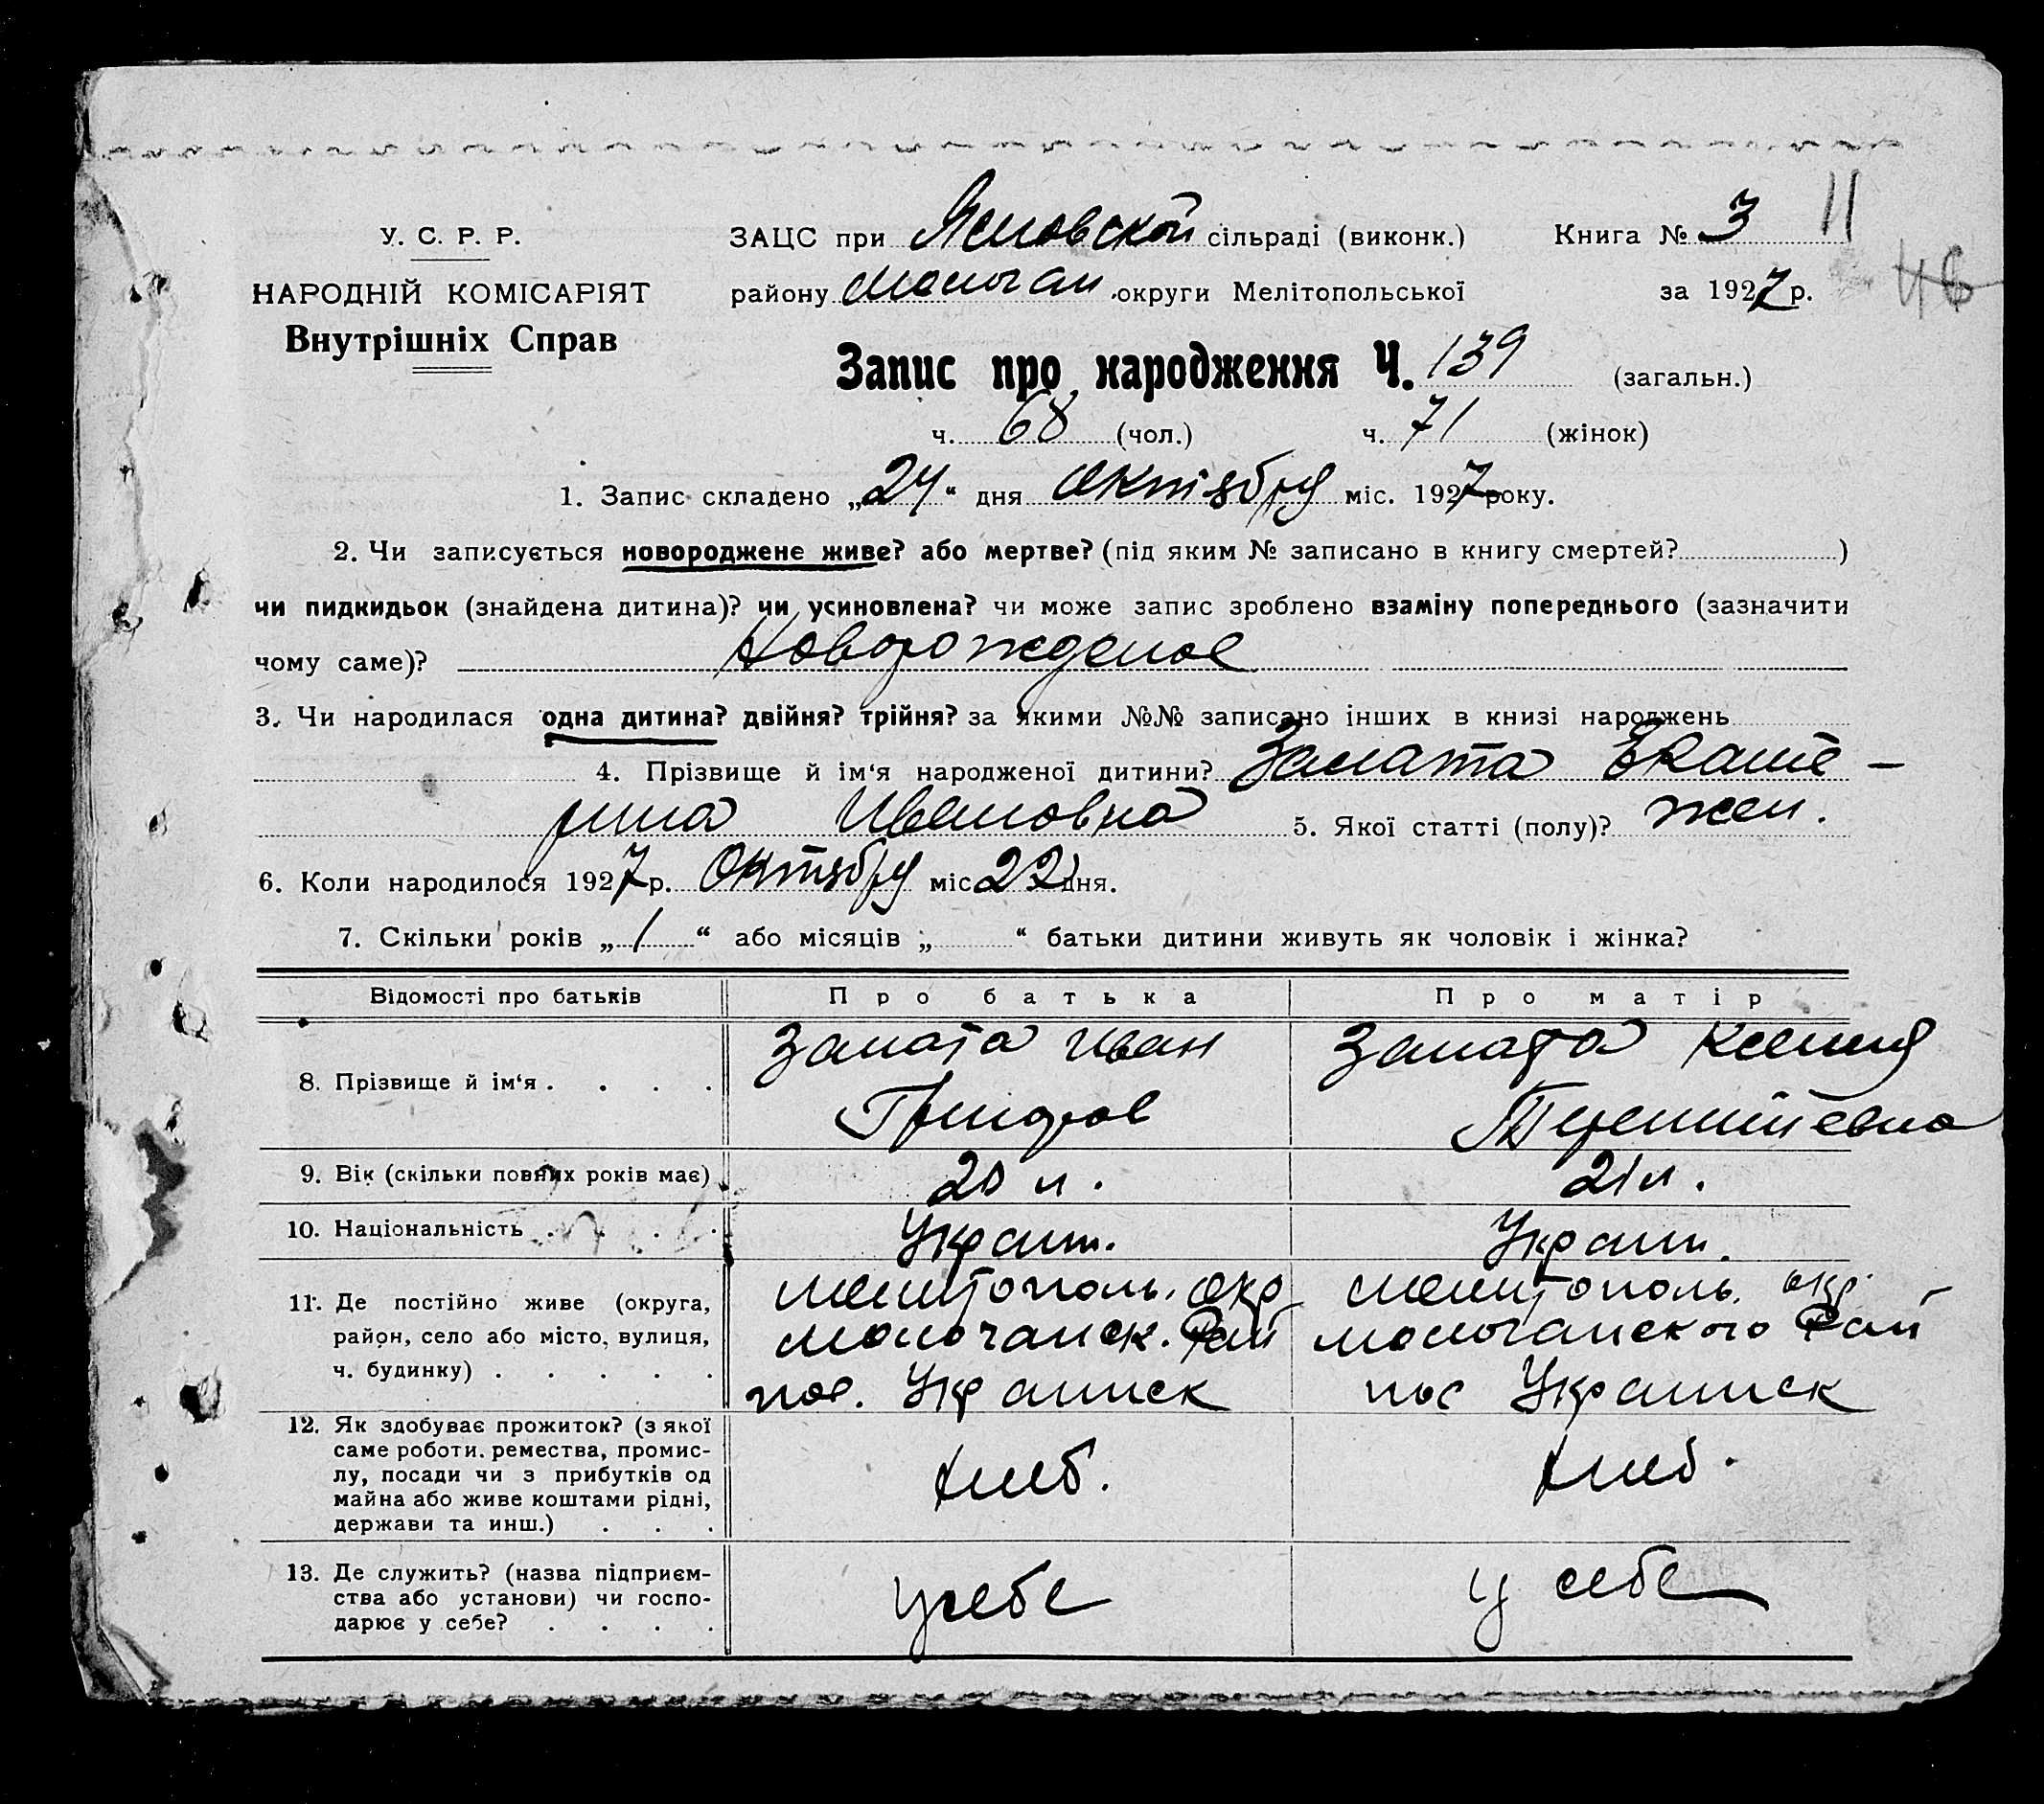 У. С. Р. Р.
НАРОДНІЙ КОМІСАРІЯТ
Внутрішніх Справ
ЗАЦС при Ясновской сільраді (виконк.) Книга № 3 11
району Молочан. округи Мелітопольської за 1927 р. 46
Запис про народження Ч. 139 (загальн.)
ч. 68 (чол.) ч. 71 (жінок)
1. Запис складено „24“ дня Октября міс. 1927 року.
2. Чи записується новороджене живе? або мертве? (під яким № записано в книгу смертей? )
чи пидкидьок (знайдена дитина)? чи усиновлена? чи може запис зроблено взаміну попереднього (зазначити
чому саме)? Новорожденое
3. Чи народилася одна дитина? двійня? трійня? за якими №№ записано інших в книзі народжень
4. Прізвище й ім‘я народженої дитини? Замата Екате–
рина Ивановна 5. Якої статті (полу)? жен.
6. Коли народилося 1927 р. Октября міс 22 дня.
7. Скільки років „1“ або місяців „ “ батьки дитини живуть як чоловік і жінка?
Відомості про батьків Про батька Про матір
8. Прізвище й ім‘я . . . . Замата Иван Замата Ксения
Григоров Терентиевна
9. Вік (скільки повних років має) 20 л. 21 л.
10. Національність . . . . Украин. Украин.
11. Де постійно живе (округа, Мелитополь. окр Мелитополь. окр.
район, село або місто, вулиця, Молочанск. Рай Молочанского Рай
ч. будинку) . . . . . пос. Украинск пос Украинск
12. Як здобуває прожиток? (з якої
саме роботи. ремества, промис-
лу, посади чи з прибутків од Хлеб. Хлеб.
майна або живе коштами рідні,
держави та инш.) . . .
13. Де служить? (назва підприєм-
ства або установи) чи госпо- у себе у себе
дарює у себе? . . . .